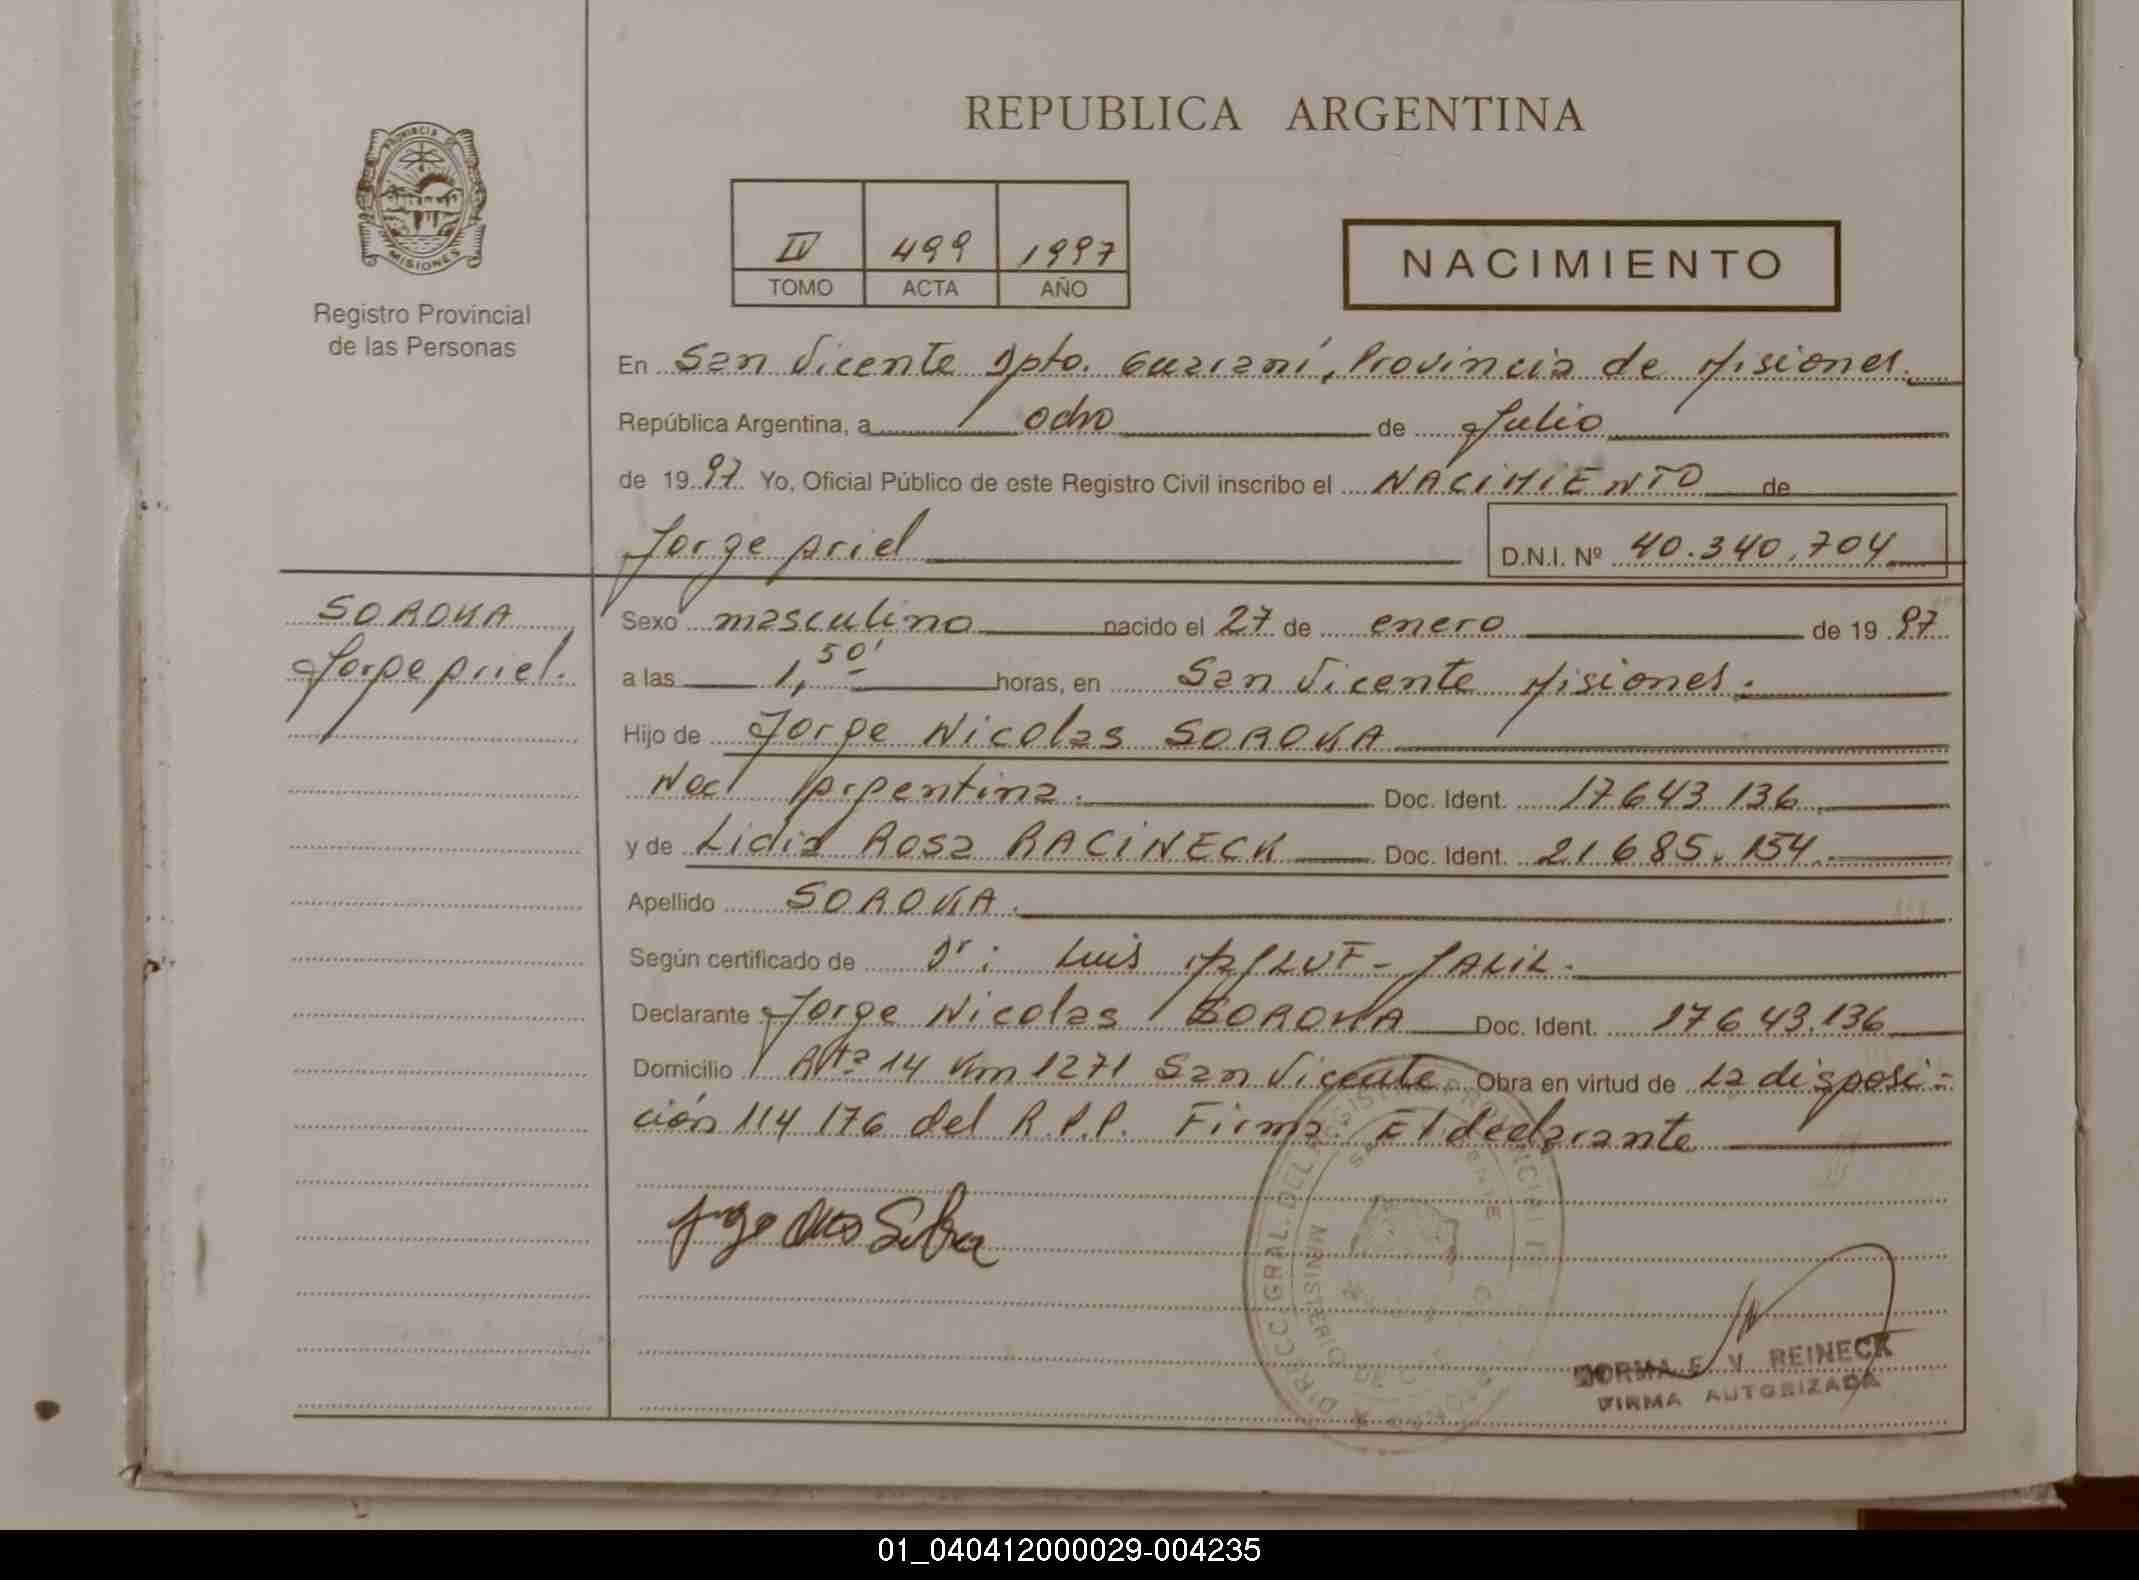 REPUBLICA ARGENTINA
PROVINCIA DE
MISIONES
Registro Provincial
de las Personas
IV 499 1997
TOMO ACTA AÑO
NACIMIENTO
En San Vicente Dpto. Guaraní, Provincia de Misiones.
República Argentina, a ocho de Julio
de 1997 Yo, Oficial Público de este Registro Civil inscribo el NACIMIENTO de
Jorge Ariel D.N.I. Nº 40.340.704
SOROKA
Jorge Ariel.
Sexo masculino nacido el 27 de enero de 1997
a las 1,50' horas, en San Vicente Misiones.
Hijo de Jorge Nicolas SOROKA
Nac Argentina. Doc. Ident. 17643136
y de Lidia Rosa RACINECK Doc. Ident. 21685.154
Apellido SOROKA.
Según certificado de Dr: Luis JALIL.
Declarante Jorge Nicolas SOROKA Doc. Ident. 17643.136
Domicilio Rta 14 Km 1271 San Vicente Obra en virtud de la disposi-
ción 114 176 del R.P.P. Firma. El declarante
DIRECC. GRAL. DEL REGISTRO PROVINCIAL
MINISTERIO DE
NORMA E. V. REINECK
FIRMA AUTORIZADA
01_040412000029-004235